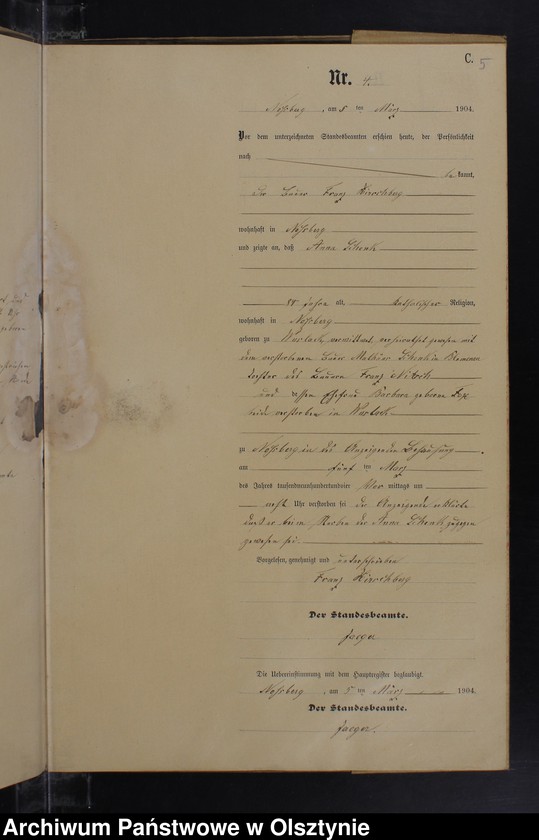 C. 5
Nr. 4.
Nossberg, am 5 ten März 1904.
Vor dem unterzeichneten Standesbeamten erschien heute, der Persönlichkeit
nach
bekannt,
der Bauer Franz Hirschberg
wohnhaft in Nossberg
und zeigte an, daß Anna Schenk
88 Jahre alt, katholischer Religion,
wohnhaft in Nossberg
geboren zu Wartack verwittwet, verheirathet gewesen mit
dem verstorbenen Bauer Schenk in
Tochter des Bauern Franz
und dessen Ehefrau Barbara geborene
beide verstorben in Wartack
zu Nossberg in des Anzeigenden Behausung
am fünf ten März
des Jahres tausendneunhundertundvier Vor mittags um
acht Uhr verstorben sei der Anzeigende erklärte
daß er beim Sterben der Anna Schenk zugegen
gewesen sei.
Vorgelesen, genehmigt und unterschrieben
Franz Hirschberg
Der Standesbeamte.
Jaeger
Die Uebereinstimmung mit dem Hauptregister beglaubigt.
Nossberg, am 5 ten März 1904.
Der Standesbeamte.
Jaeger.
Archiwum Państwowe w Olsztynie